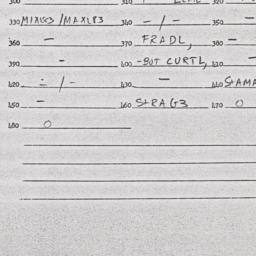 300 310 320
330 MIXLG3 /MAXL83 340 - / - 350 -
360 - 370 FRADL, 380 -
390 - 400 -BUT CURTL, 410 -
420 ÷ / - 430 - 440 STAMA
450 - 460 STRAG3 470 0
480 0